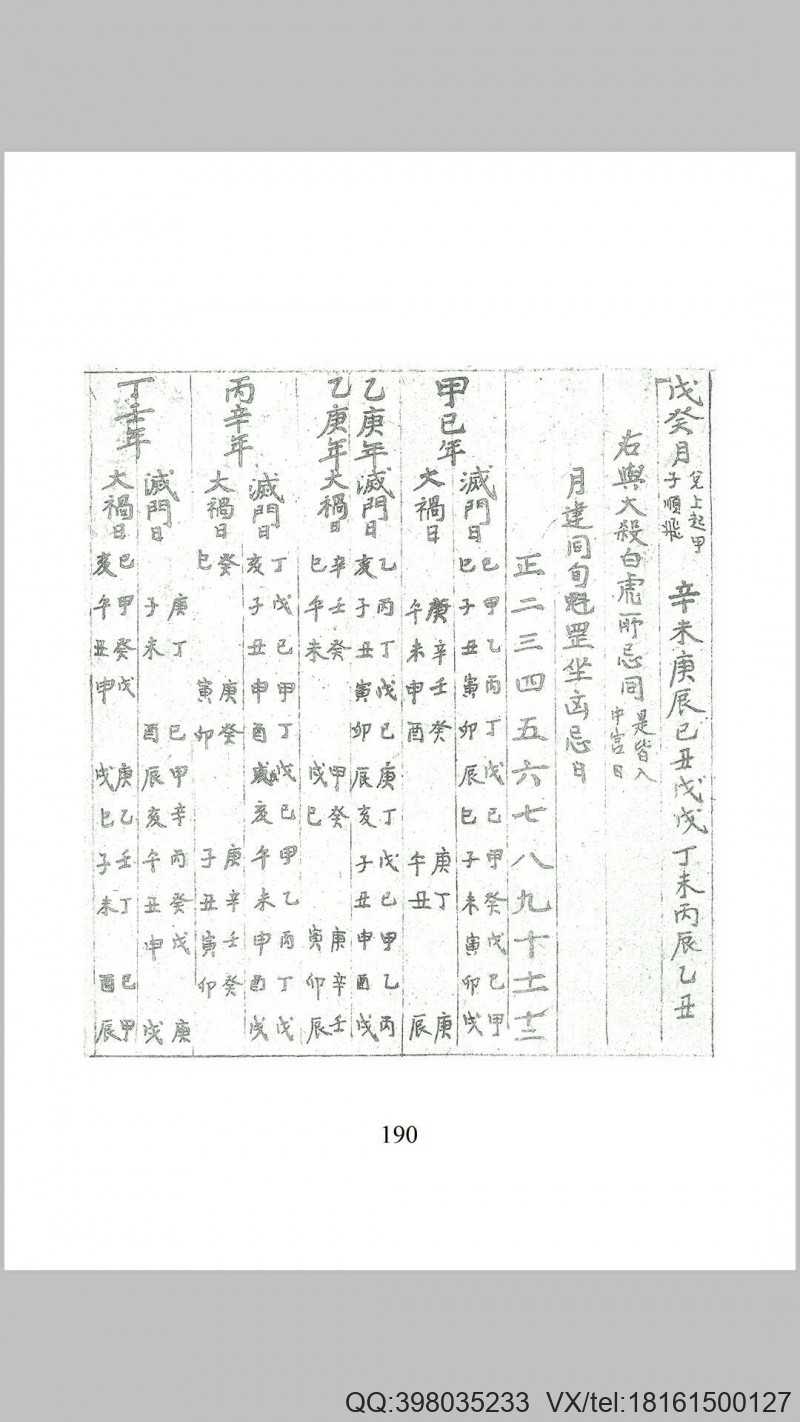 戊癸月 兌上起甲子順飛 辛未庚辰己丑戊戌丁未丙辰乙丑
右與大殺白虎所忌同 是皆入中宮日
月建同旬魁罡坐凶忌日
正 二 三 四 五 六 七 八 九 十 十一 十二
甲己年
滅門日 己巳 甲子 乙丑 丙寅 丁卯 戊辰 己巳 甲子 癸未 戊寅 己卯 甲戌
大禍日 庚午 辛未 壬申 癸酉 庚午 丁丑 庚辰
乙庚年滅門日 乙亥 丙子 丁丑 戊寅 己卯 庚辰 丁亥 戊子 己丑 甲申 乙酉 丙戌
乙庚年大禍日 辛巳 壬午 癸未 甲戌 癸巳 庚寅 辛卯 壬辰
丙辛年
滅門日 丁亥 戊子 己丑 甲申 丁酉 戊戌 己亥 甲午 乙未 丙申 丁酉 戊戌
大禍日 癸巳 庚寅 癸卯 庚子 辛丑 壬寅 癸卯
丁壬年
滅門日 庚子 丁未 己酉 甲辰 辛亥 丙午 癸丑 戊申 庚戌
大禍日 己亥 甲午 癸丑 戊申 庚戌 乙巳 壬子 丁未 己酉 甲辰
190
QQ:398035233 VX/tel:18161500127